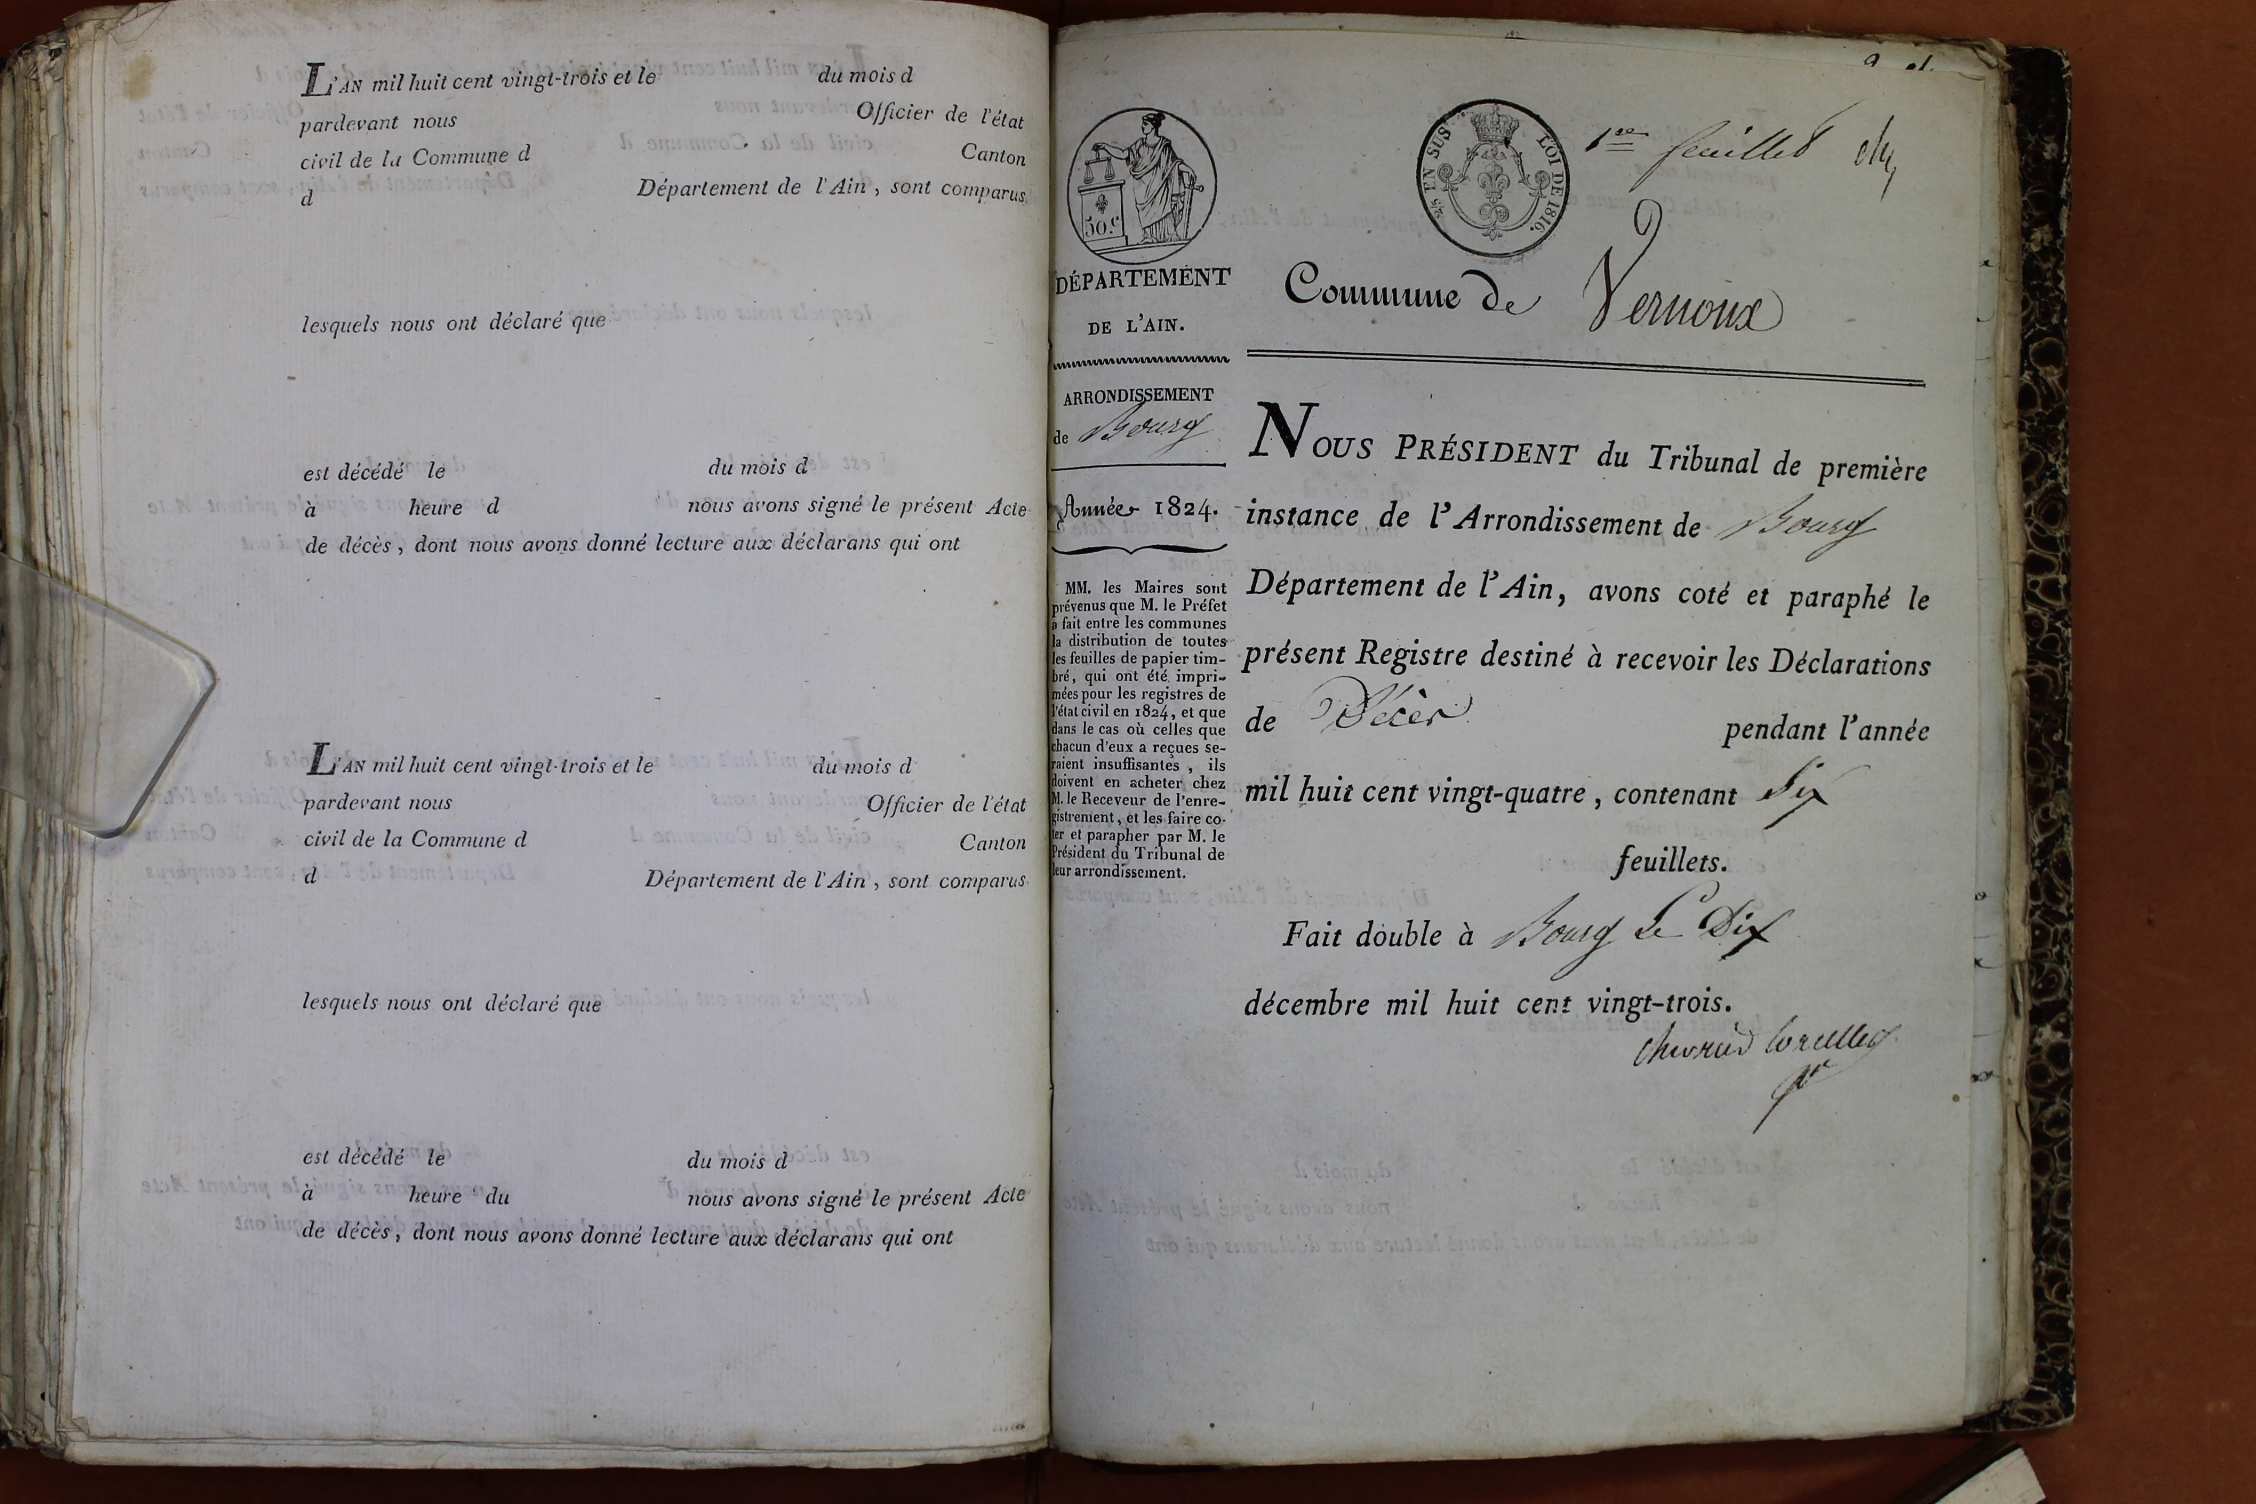 L'AN mil huit cent vingt-trois et le du mois d
pardevant nous Officier de l'état
civil de la Commune d Canton
d Département de l'Ain, sont comparus
lesquels nous ont déclaré que
est décédé le du mois d
à heure d nous avons signé le présent Acte
de décès, dont nous avons donné lecture aux déclarans qui ont
L'AN mil huit cent vingt-trois et le du mois d
pardevant nous Officier de l'état
civil de la Commune d Canton
d Département de l'Ain, sont comparus
lesquels nous ont déclaré que
est décédé le du mois d
à heure du nous avons signé le présent Acte
de décès, dont nous avons donné lecture aux déclarans qui ont
50.c
EN SUS LOI DE 1816.
1re feuillet
DÉPARTEMENT
DE L'AIN.
ARRONDISSEMENT
de Bourg
Année 1824.
MM. les Maires sont
prévenus que M. le Préfet
a fait entre les communes
la distribution de toutes
les feuilles de papier tim-
bré, qui ont été impri-
mées pour les registres de
l'état civil en 1824, et que
dans le cas où celles que
chacun d'eux a reçues se-
raient insuffisantes, ils
doivent en acheter chez
M. le Receveur de l'enre-
gistrement, et les faire co-
ter et parapher par M. le
Président du Tribunal de
leur arrondissement.
Commune de Vernoux
NOUS PRÉSIDENT du Tribunal de première
instance de l'Arrondissement de Bourg
Département de l'Ain, avons coté et paraphé le
présent Registre destiné à recevoir les Déclarations
de Décès pendant l'année
mil huit cent vingt-quatre, contenant Six
feuillets.
Fait double à Bourg Le Dix
décembre mil huit cent vingt-trois.